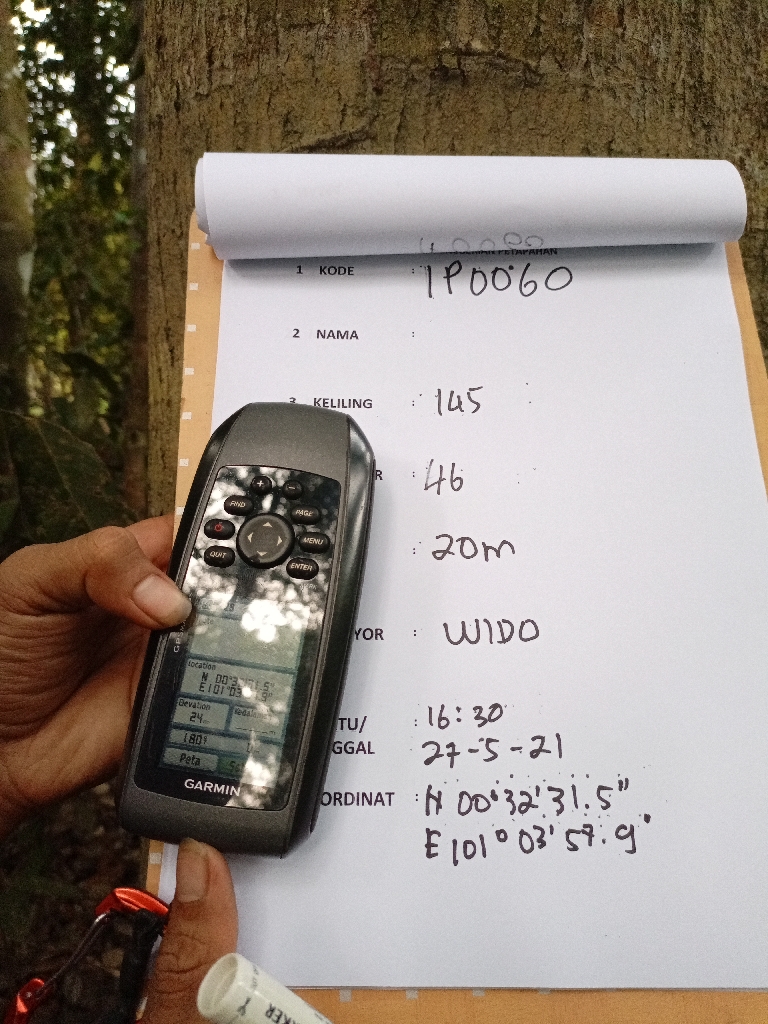 1 KODE : 1P0060
2 NAMA :
3 KELILING : 145
R : 46
: 20m
YOR : WIDO
TU/ : 16:30
GGAL 27-5-21
ORDINAT : N 00°32'31.5"
E101°03'57.9"
FIND
PAGE
MENU
QUIT
ENTER
Location
N 00°32'31.5"
E101°03'
Elevation
24
180°
Peta
GARMIN